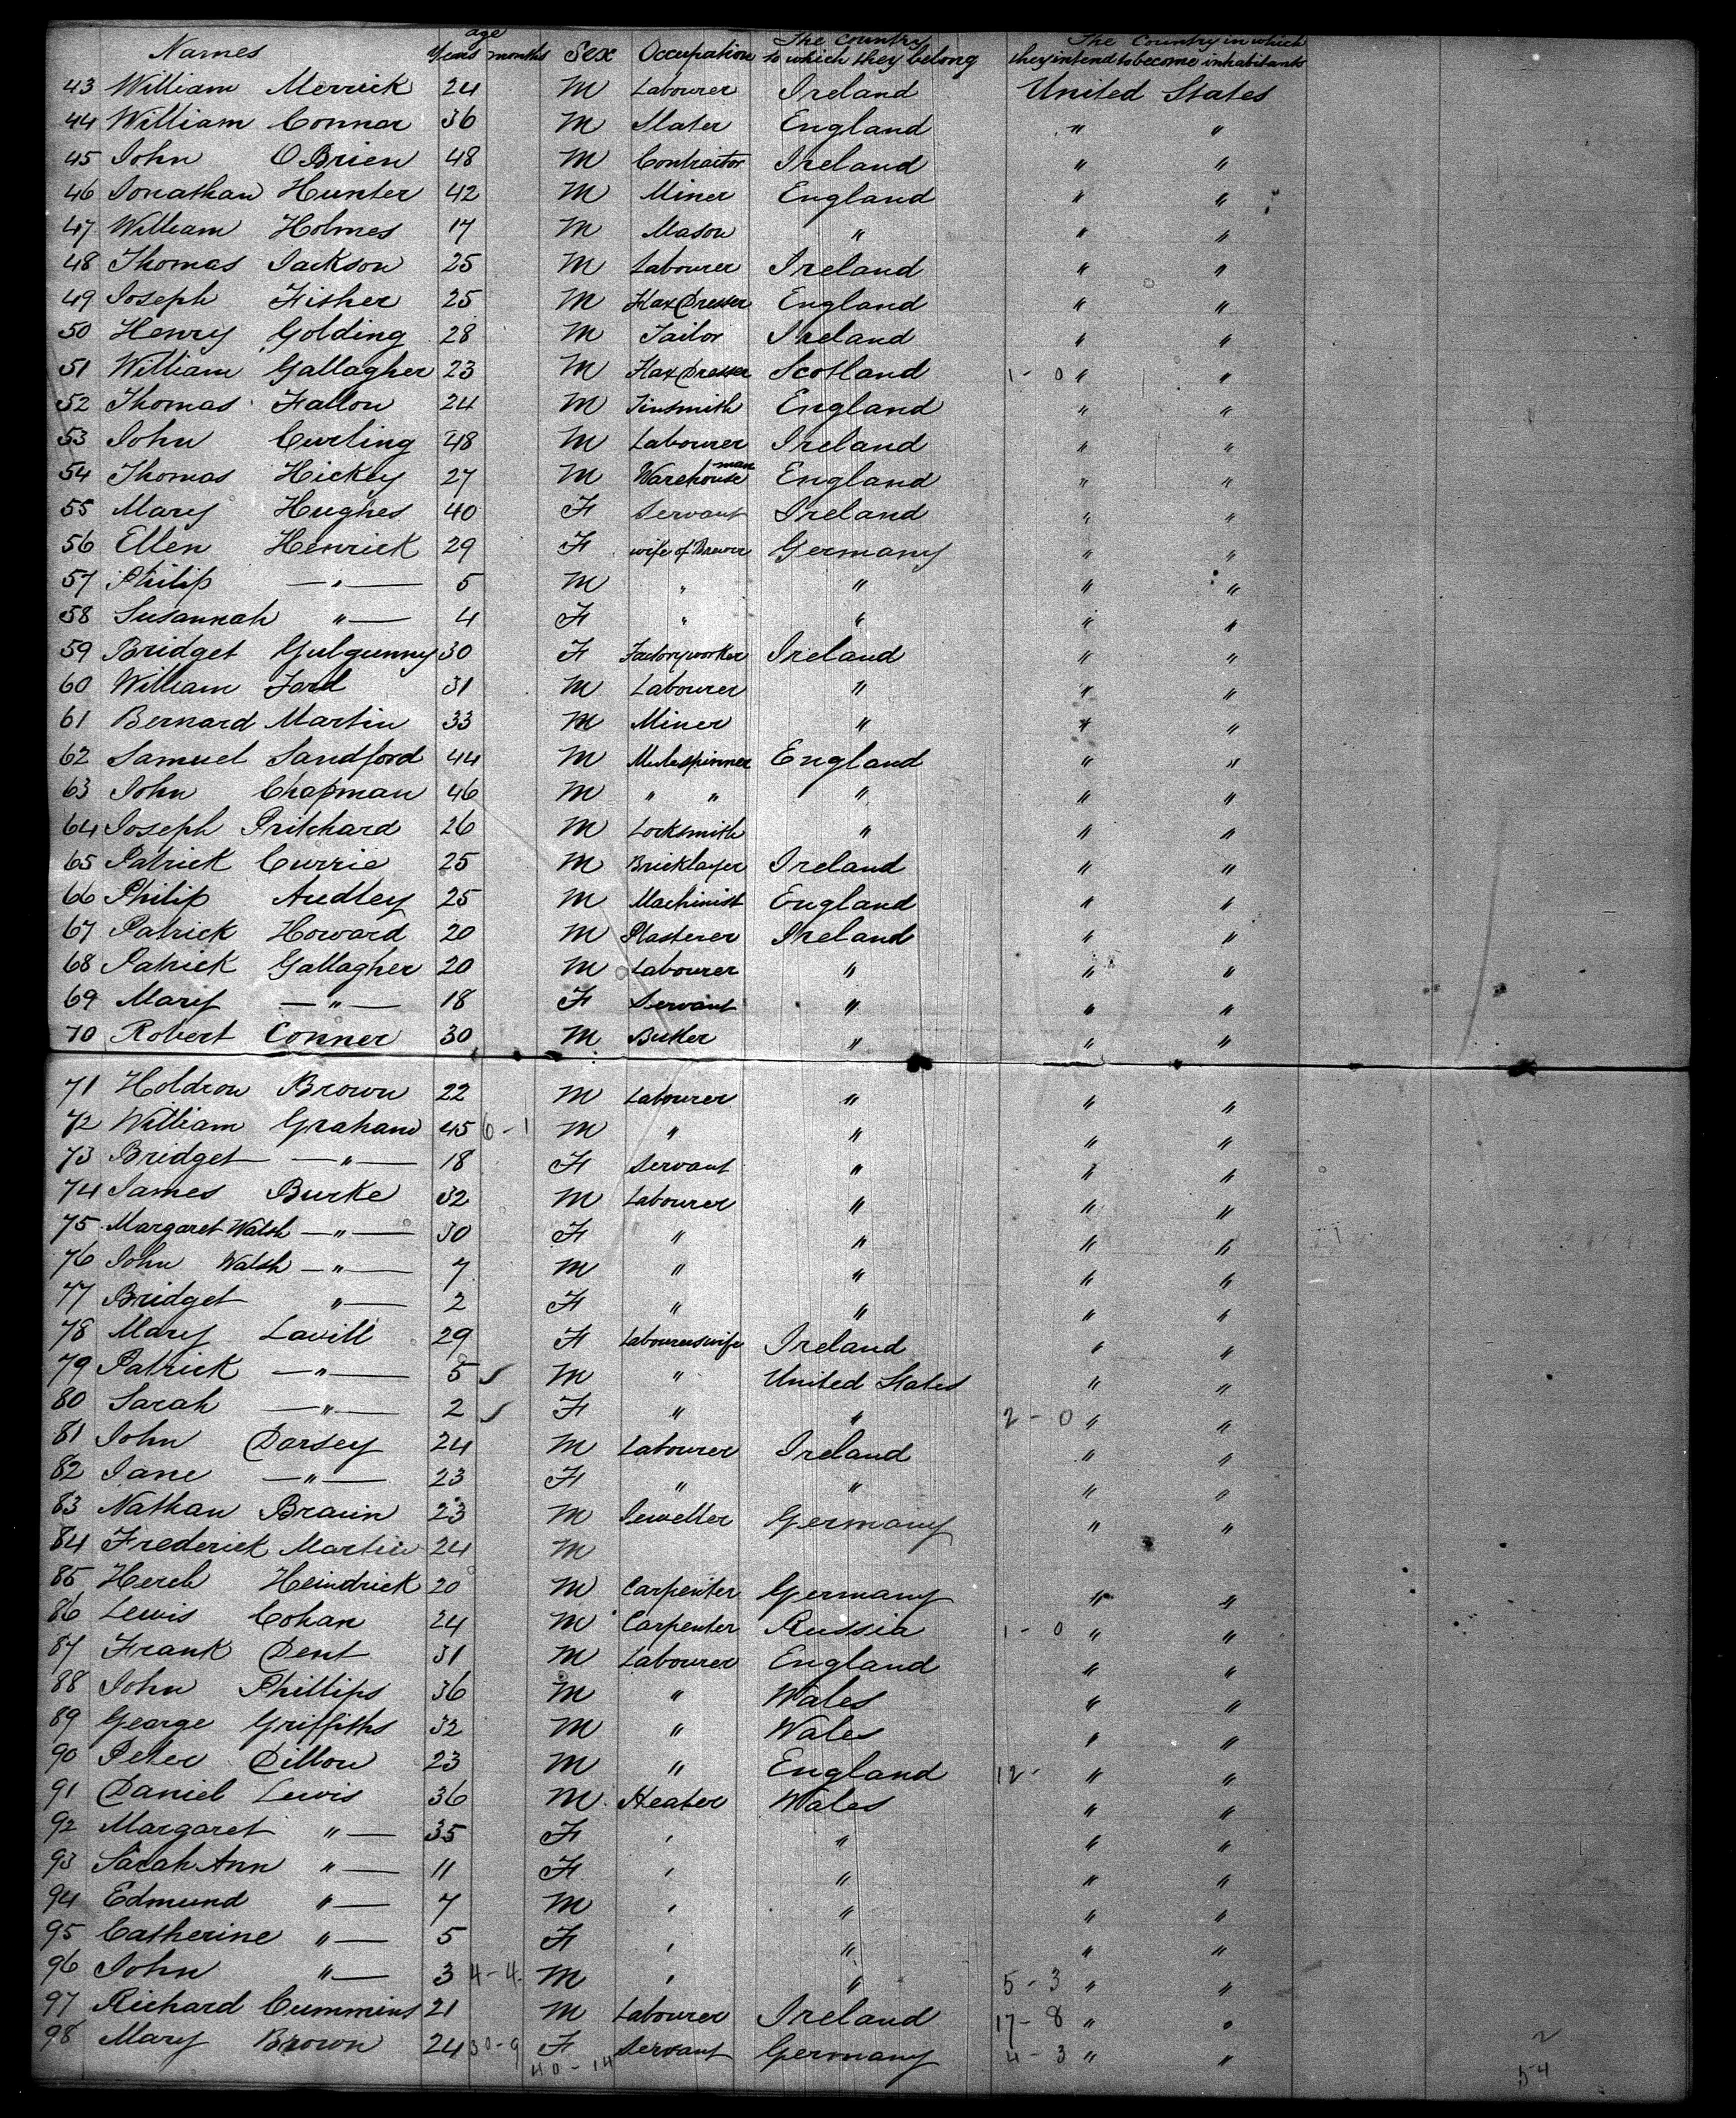 Names age Years months Sex Occupation The Country to which they belong The Country in which they intend to become inhabitants
43 William Merrick 24 M Labourer Ireland United States
44 William Connor 36 M Slater England " "
45 John OBrien 48 M Contractor Ireland " "
46 Jonathan Hunter 42 M Miner England " "
47 William Holmes 17 M Mason " " "
48 Thomas Jackson 25 M Labourer Ireland " "
49 Joseph Fisher 25 M Flax Dresser England " "
50 Henry Golding 28 M Tailor Ireland " "
51 William Gallagher 23 M Flax Dresser Scotland 1 - 0 " "
52 Thomas Fallon 24 M Tinsmith England " "
53 John Curling 48 M Labourer Ireland " "
54 Thomas Hickey 27 M Warehouseman England " "
55 Mary Hughes 40 F Servant Ireland " "
56 Ellen Henrick 29 F wife of Brewer Germany " "
57 Philip — " — 5 M " " " "
58 Susannah " — 4 F " " " "
59 Bridget Gulgunny 30 F Factory worker Ireland " "
60 William Ford 31 M Labourer " " "
61 Bernard Martin 33 M Miner " " "
62 Samuel Sandford 44 M Mulespinner England " "
63 John Chapman 46 M " " " " "
64 Joseph Pritchard 26 M Locksmith " " "
65 Patrick Currie 25 M Bricklayer Ireland " "
66 Philip Audley 25 M Machinist England " "
67 Patrick Howard 20 M Plasterer Ireland " "
68 Patrick Gallagher 20 M Labourer " " "
69 Mary — " — 18 F Servant " " "
70 Robert Conner 30 M Butler " " "
71 Holdron Brown 22 M Labourer " " "
72 William Graham 45 6 - 1 M " " " "
73 Bridget — " — 18 F Servant " " "
74 James Burke 32 M Labourer " " "
75 Margaret Walsh — " — 30 F " " " "
76 John Walsh — " — 7 M " " " "
77 Bridget " — 2 F " " " "
78 Mary Lavill 29 F Labourers wife Ireland " "
79 Patrick — " — 5 ✓ M " United States " "
80 Sarah — " — 2 ✓ F " " 2 - 0 " "
81 John Dorsey 24 M Labourer Ireland " "
82 Jane — " — 23 F " " " "
83 Nathan Braun 23 M Jeweller Germany " "
84 Frederick Martin 24 M
85 Herch Heindrick 20 M Carpenter Germany " "
86 Lewis Cohan 24 M Carpenter Russia 1 - 0 " "
87 Frank Dent 31 M Labourer England " "
88 John Phillips 36 M " Wales " "
89 George Griffiths 32 M " Wales " "
90 Peter Dillon 23 M " England 12 - " "
91 Daniel Lewis 36 M Heater Wales " "
92 Margaret " — 35 F " " " "
93 Sarah Ann " — 11 F " " " "
94 Edmund " — 7 M " " " "
95 Catherine " — 5 F " " " "
96 John " — 3 4 - 4 M " " 5 - 3 " "
97 Richard Cummins 21 M Labourer Ireland 17 - 8 " "
98 Mary Brown 24 30 - 9 F Servant Germany 4 - 3 " "
40 - 14 54